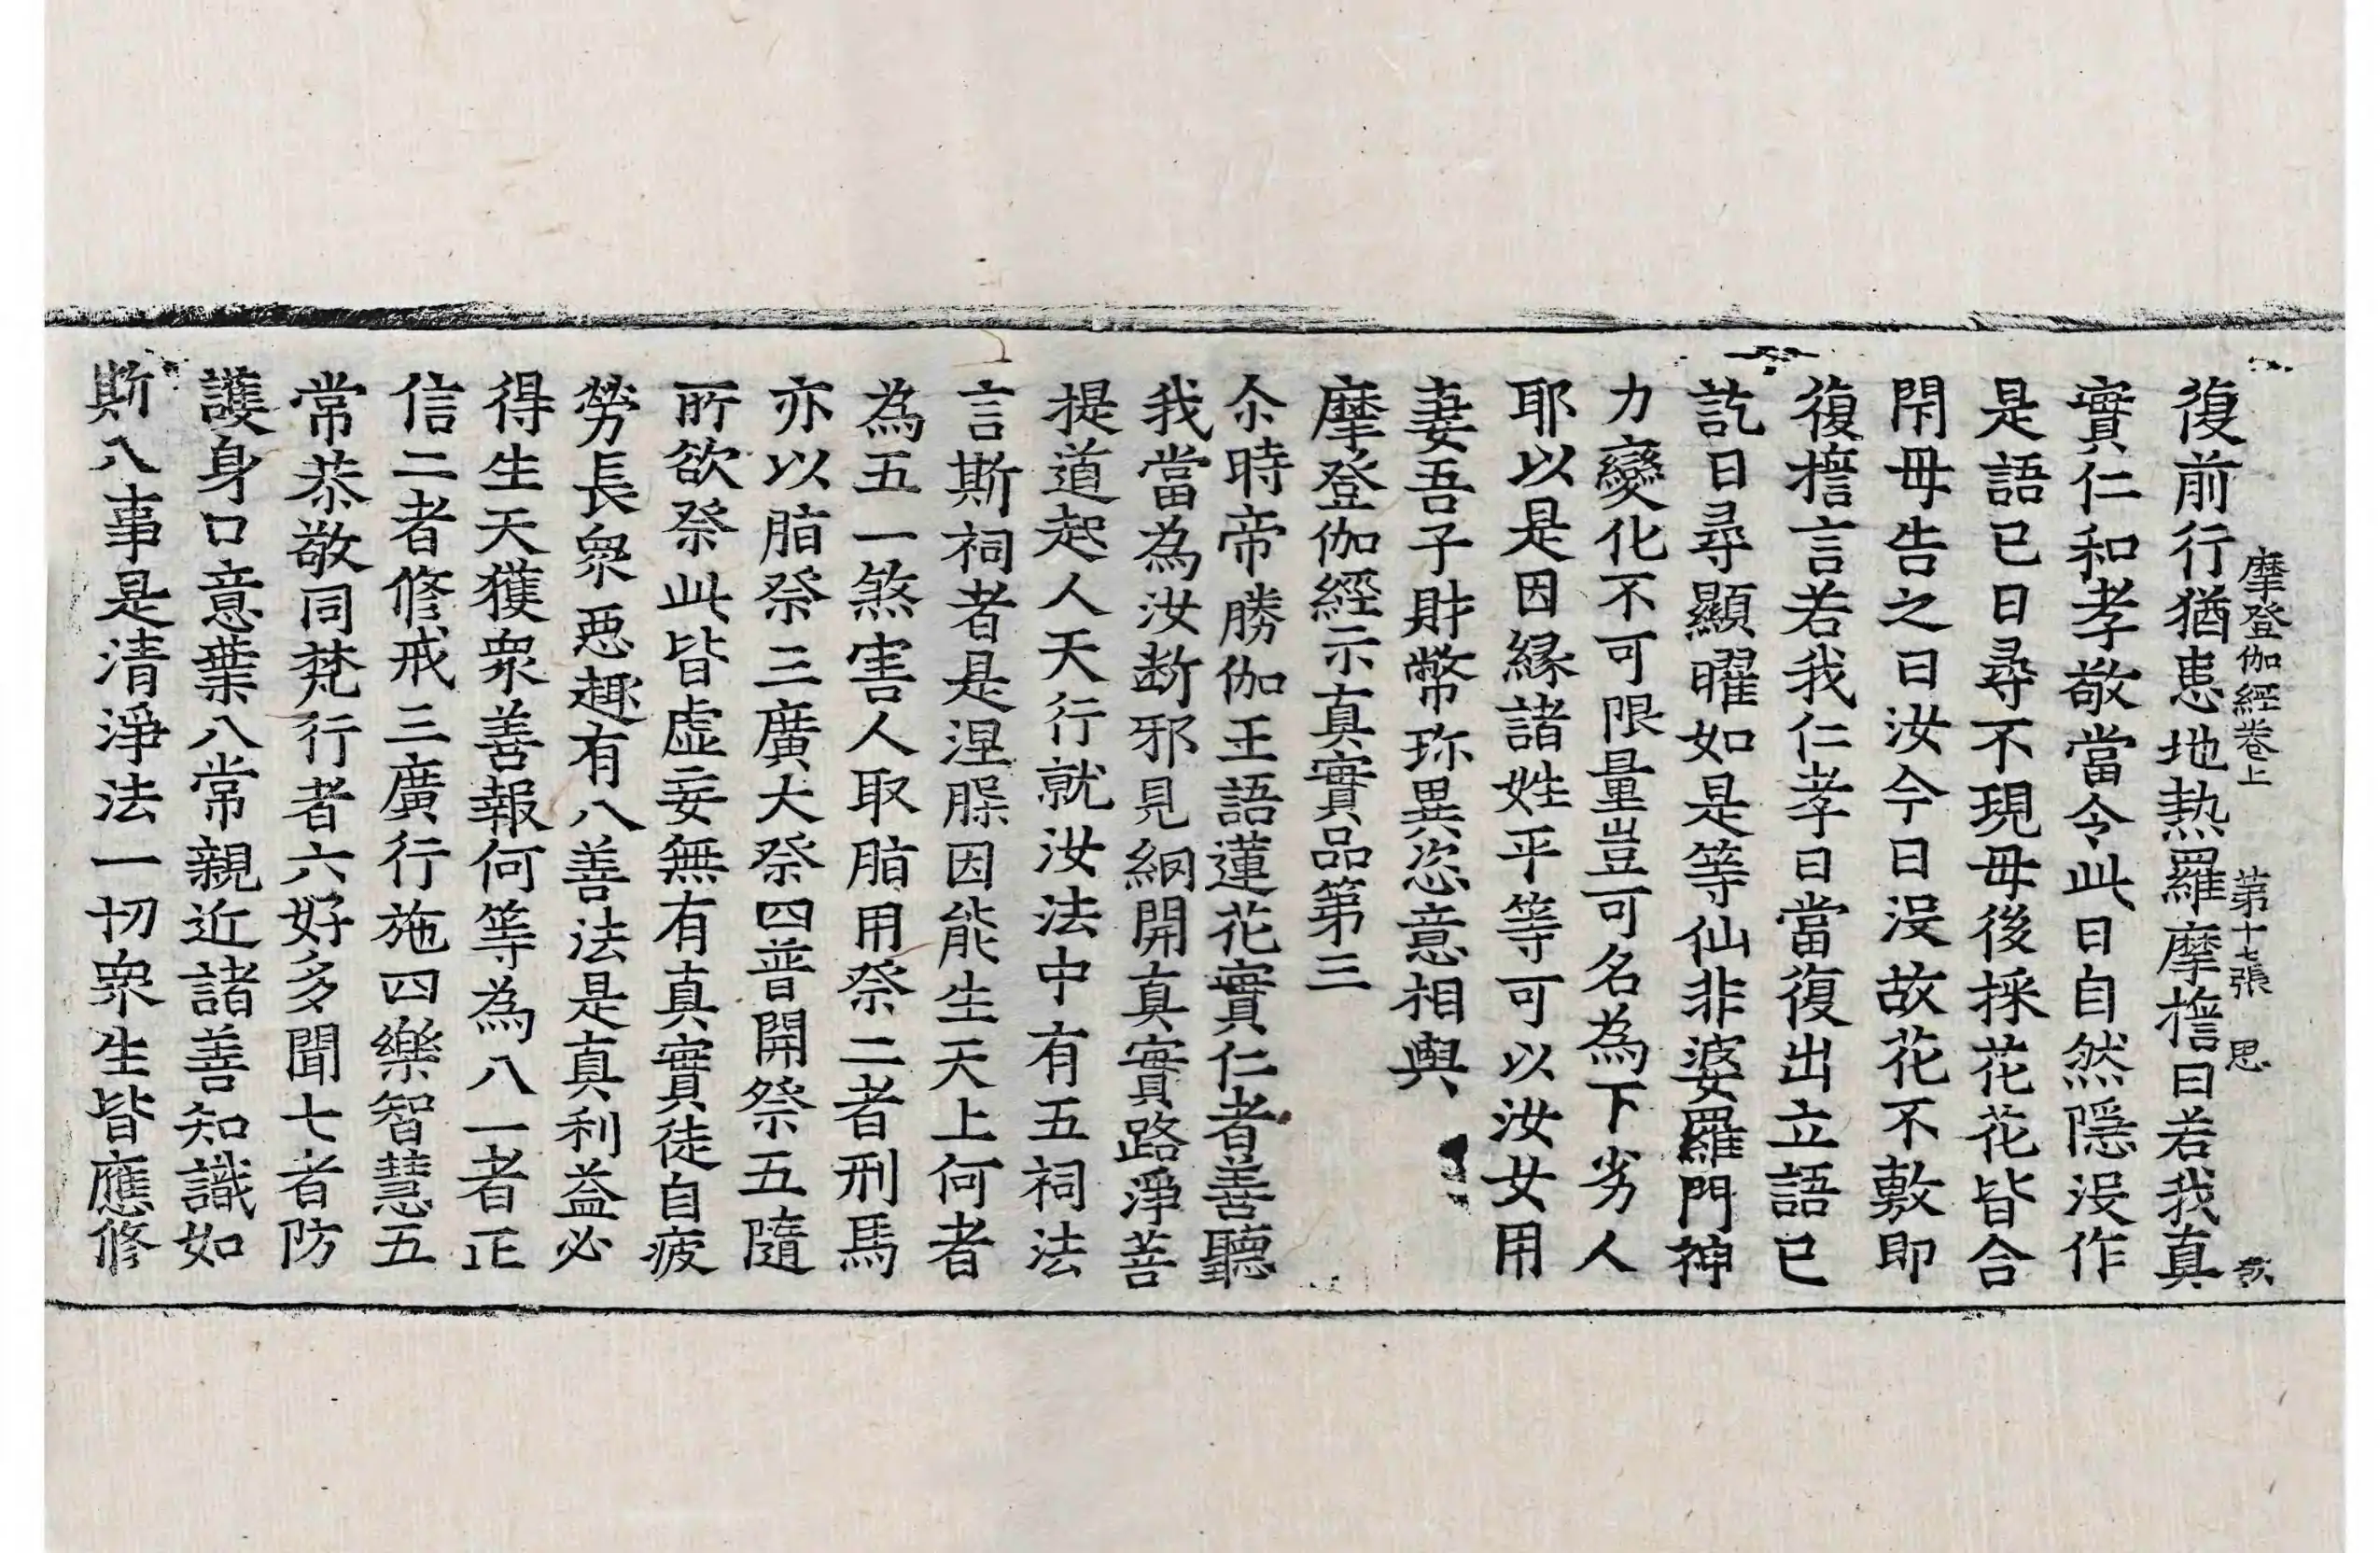 摩登伽經卷上 第十七張 思
復前行猶患地熱羅摩擔曰若我真
實仁和孝敬當令此日自然隱没作
是語已日尋不現毋後採花花皆合
閇毋告之曰汝今日没故花不敷即
復擔言若我仁孝日當復出立語已
訖日尋顯曜如是等仙非婆羅門神
力變化不可限量豈可名為下劣人
耶以是因縁諸姓平等可以汝女用
妻吾子財幣珎異恣意相與
摩登伽經示真實品第三
尒時帝勝伽王語蓮花實仁者善聽
我當為汝断邪見網開真實路淨菩
提道起人天行就汝法中有五祠法
言斯祠者是涅槃因能生天上何者
為五一煞害人取脂用祭二者刑馬
亦以脂祭三廣大祭四普開祭五隨
所欲祭此皆虚妄無有真實徒自疲
勞長衆惡趣有八善法是真利益必
得生天獲衆善報何等為八一者正
信二者修戒三廣行施四樂智慧五
常恭敬同梵行者六好多聞七者防
護身口意業八常親近諸善知識如
斯八事是清淨法一切衆生皆應修